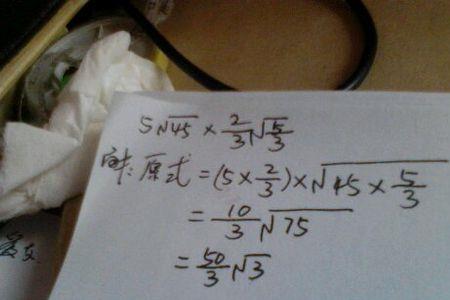 5√45 × 2/3√5/3
解:原式=(5×2/3)×√45×5/3
=10/3√75
=50/3√3